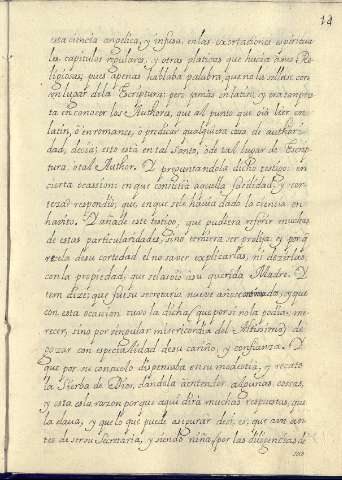 14
esta ciencia angelica, y infusa, en las exortaciones espirituales,
capitulos regulares, y otras platicas que hacia à sus Re-
ligiosas; pues apenas hablaba palabra, que no la sellase con
un lugar de la Scriptura: pero jamàs en latin; y era tan pres-
ta en conocer los Authores, que al punto que oìa leer en
latin, ò en romance, ò predicar qualquiera cosa de author-
dad, decia; esto està en tal Santo, ò de tal lugar de Scrip-
tura, ò tal Author. Y preguntandola dicho testigo: en
cierta ocassion: en que consistia aquella facilidad, y cer-
teza? respondiò; que, en que se le havia dado la ciencia en
havito. Y añade este testigo, que pudiera referir muchas
de estas particularidades, sino temiera ser prolija; y por q
recela de su cortedad el no saver explicarlas, ni decirlas,
con la propiedad, que se las oiò à su querida Madre. Y
tem dice; que fue su secretaria nueve años; y que
con esta ocasion tuvo la dicha (que por si no la podia me-
recer, sino por singular misericordia del Altissimo) de
gozar con especialidad de su cariño, y confianza. Y
que por su consuelo dispensaba en su modestia, y recato
la Sierba de Dios, dandola à entender algunas cossas,
y esta es la razon por que aqui dirà muchas respuestas, que
la daua, y que lo que puede asegurar es, en que aun an-
tes de ser su Secretaria, y siendo niña, por las diligencias de